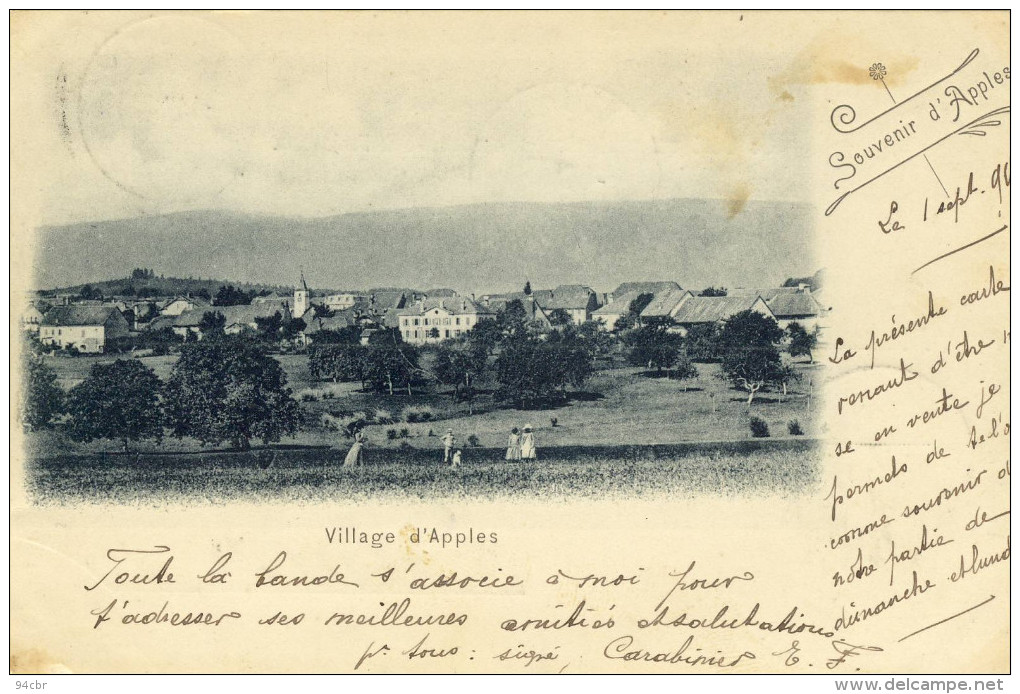 Souvenir d'Apples
Le 1 sept.
La présente carte
venant d'être
se en vente je
permets de te l'o
comme souvenir d
notre partie de
dimanche et lund
Village d'Apples
Toute la bande s'associe à moi pour
t'adresser ses meilleures amitiés et salutations.
pr tous: signé, Carabinier E. F.
94cbr
www.delcampe.net